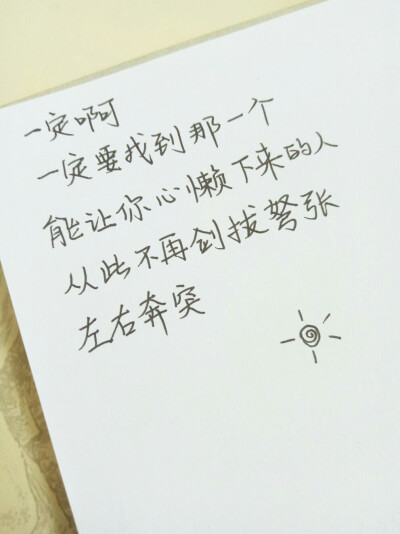 一定啊
一定要找到那一个
能让你心懒下来的人
从此不再剑拔弩张
左右奔突